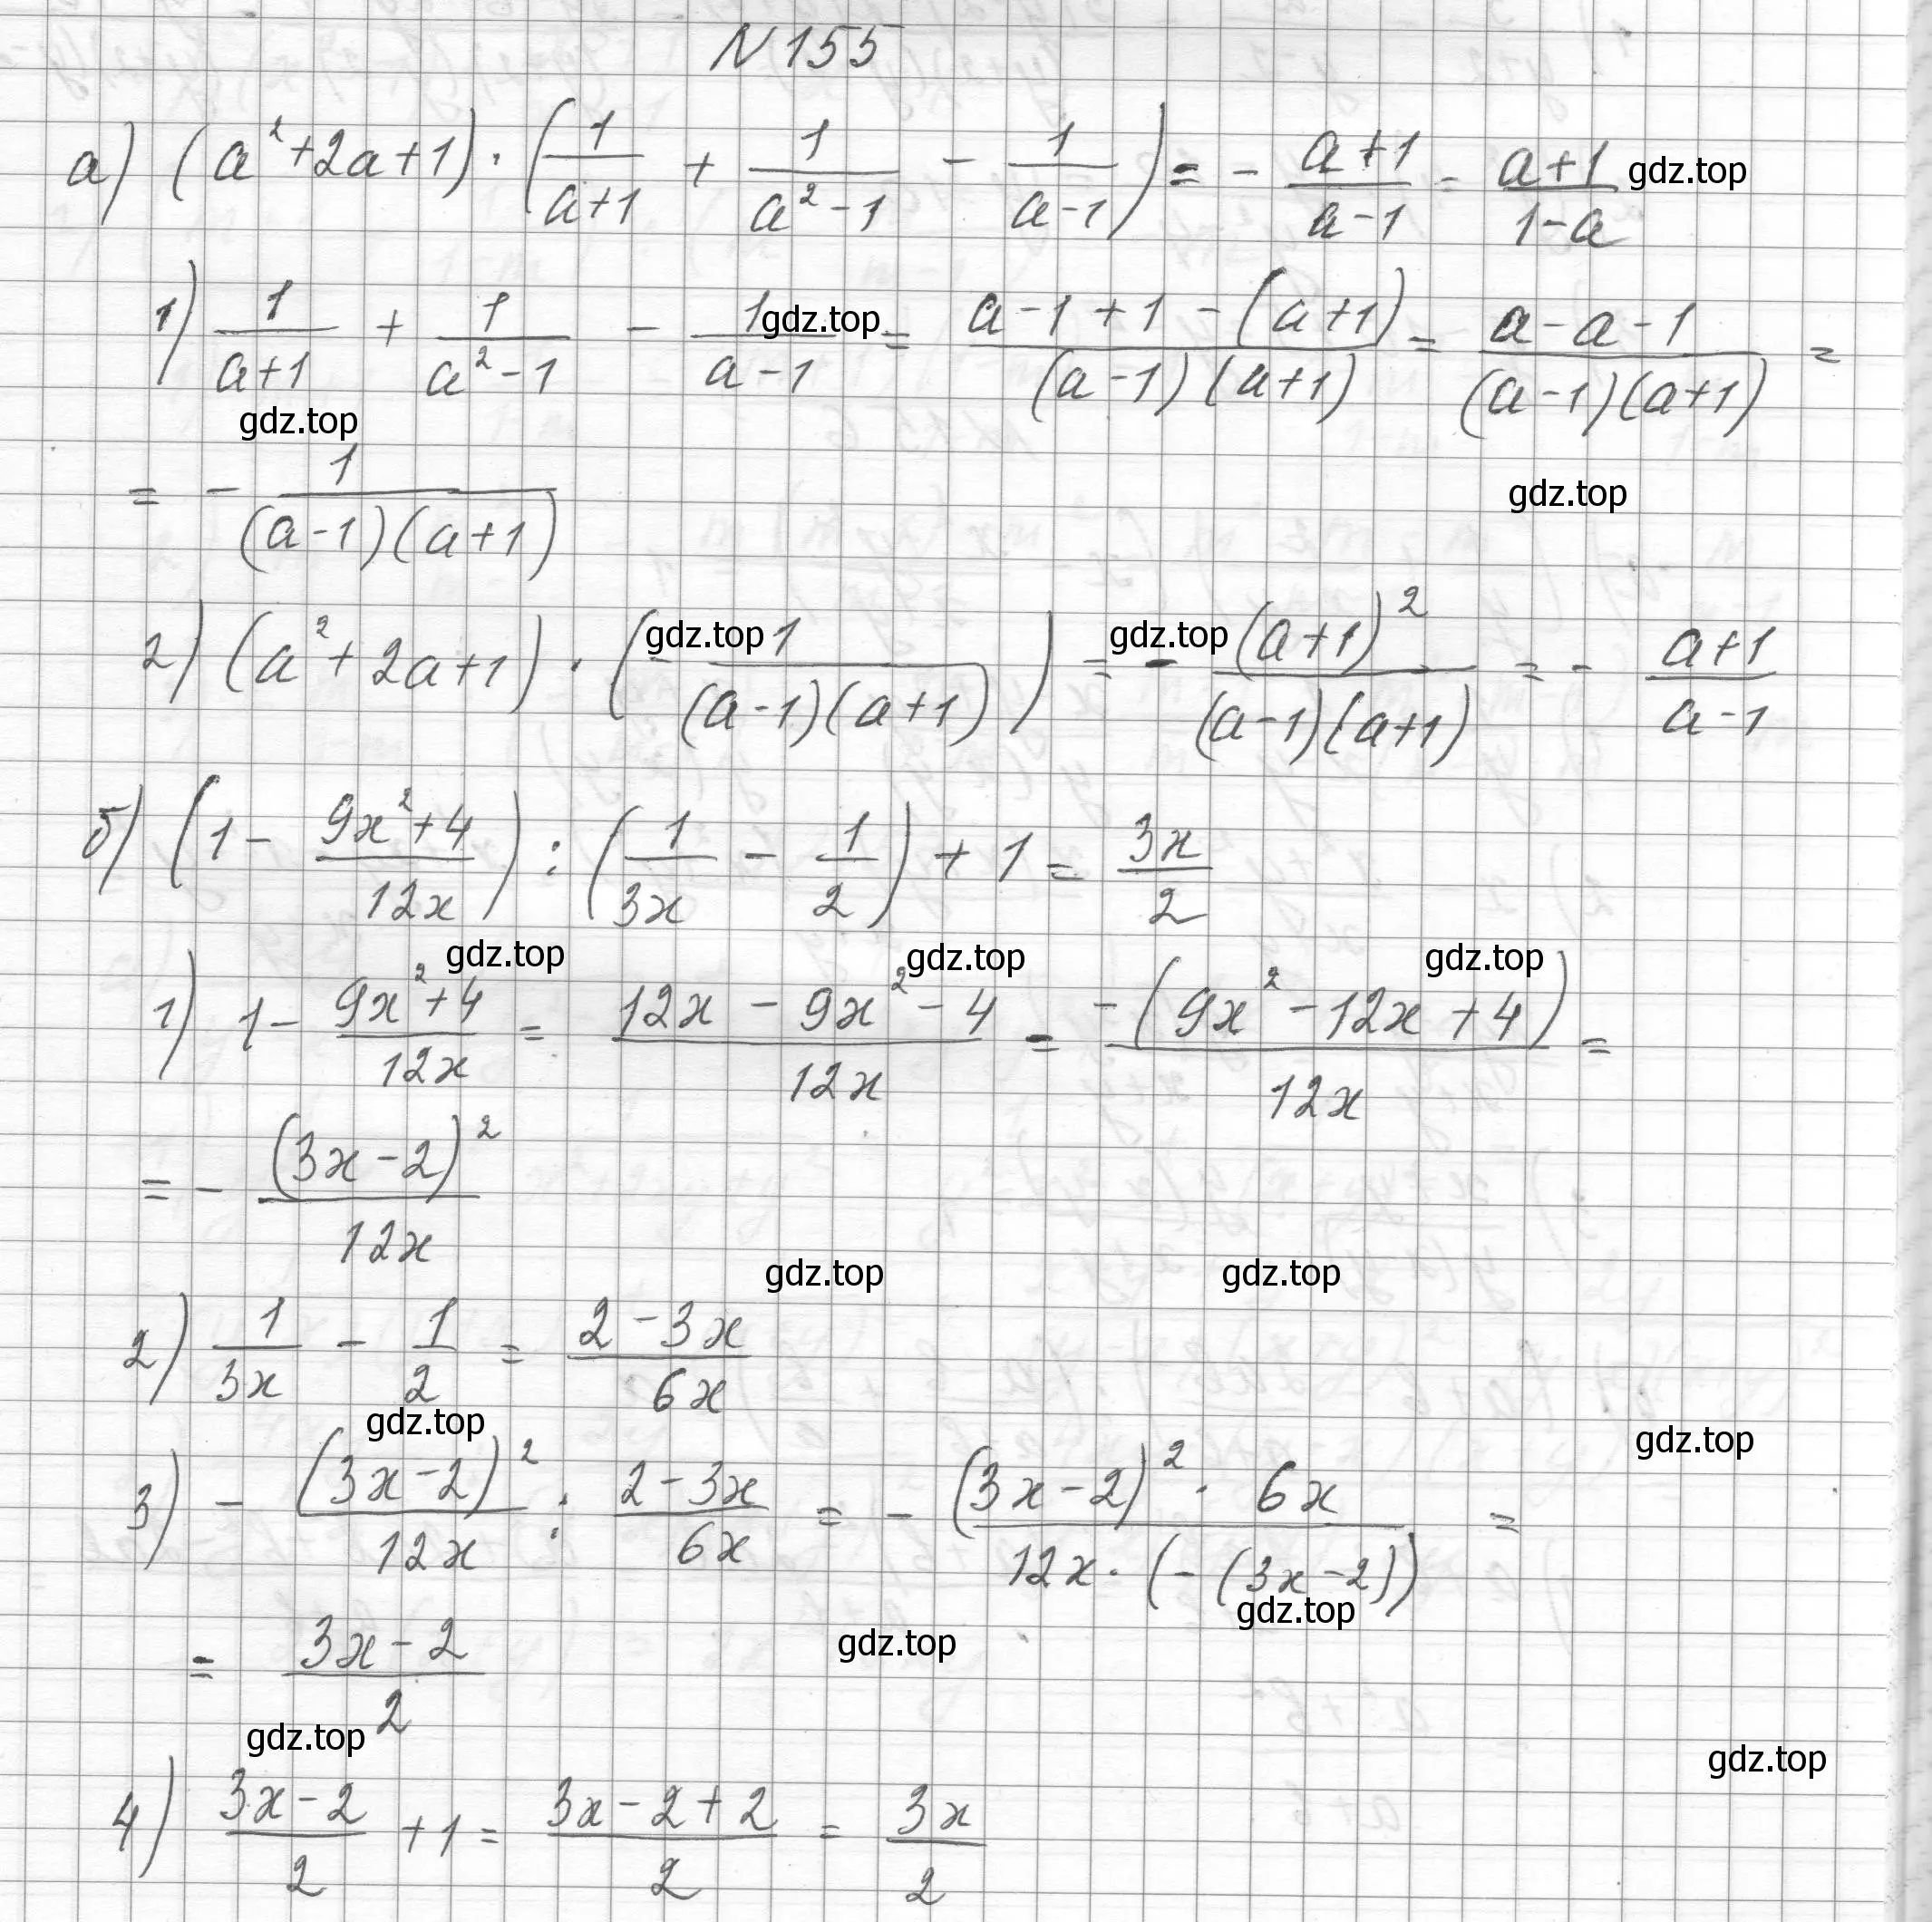 N 155
а) (a²+2a+1) · (1/(a+1) + 1/(a²-1) - 1/(a-1)) = - (a+1)/(a-1) = (a+1)/(1-a) gdz.top
1) 1/(a+1) + 1/(a²-1) - 1/(a-1) gdz.top = (a-1+1-(a+1))/((a-1)(a+1)) = (a-a-1)/((a-1)(a+1)) =
gdz.top
= - 1/((a-1)(a+1)) gdz.top
2) (a²+2a+1) · (- gdz.top 1/((a-1)(a+1))) = gdz.top - (a+1)²/((a-1)(a+1)) = - (a+1)/(a-1)
б) (1 - (9x²+4)/(12x)) : (1/(3x) - 1/2) + 1 = 3x/2
gdz.top gdz.top gdz.top
1) 1 - (9x²+4)/(12x) = (12x - 9x² - 4)/(12x) = -(9x² - 12x + 4)/(12x) =
= - (3x-2)²/(12x)
gdz.top gdz.top
2) 1/(3x) - 1/2 = (2-3x)/(6x)
gdz.top gdz.top
3) - (3x-2)²/(12x) : (2-3x)/(6x) = - ((3x-2)² · 6x)/(12x · (-(3x-2))) =
gdz.top
= (3x-2)/2 gdz.top
gdz.top gdz.top
4) (3x-2)/2 + 1 = (3x-2+2)/2 = 3x/2